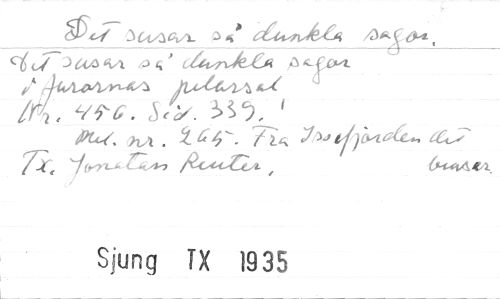 Det susar så dunkla sagor.
Det susar så dunkla sagor
i furornas pelarsal
Nr. 456. Sid. 339.
Mel. nr. 265. Fra Issefjorden det
Tx. Jonatan Reuter, brusar
Sjung TX 1935